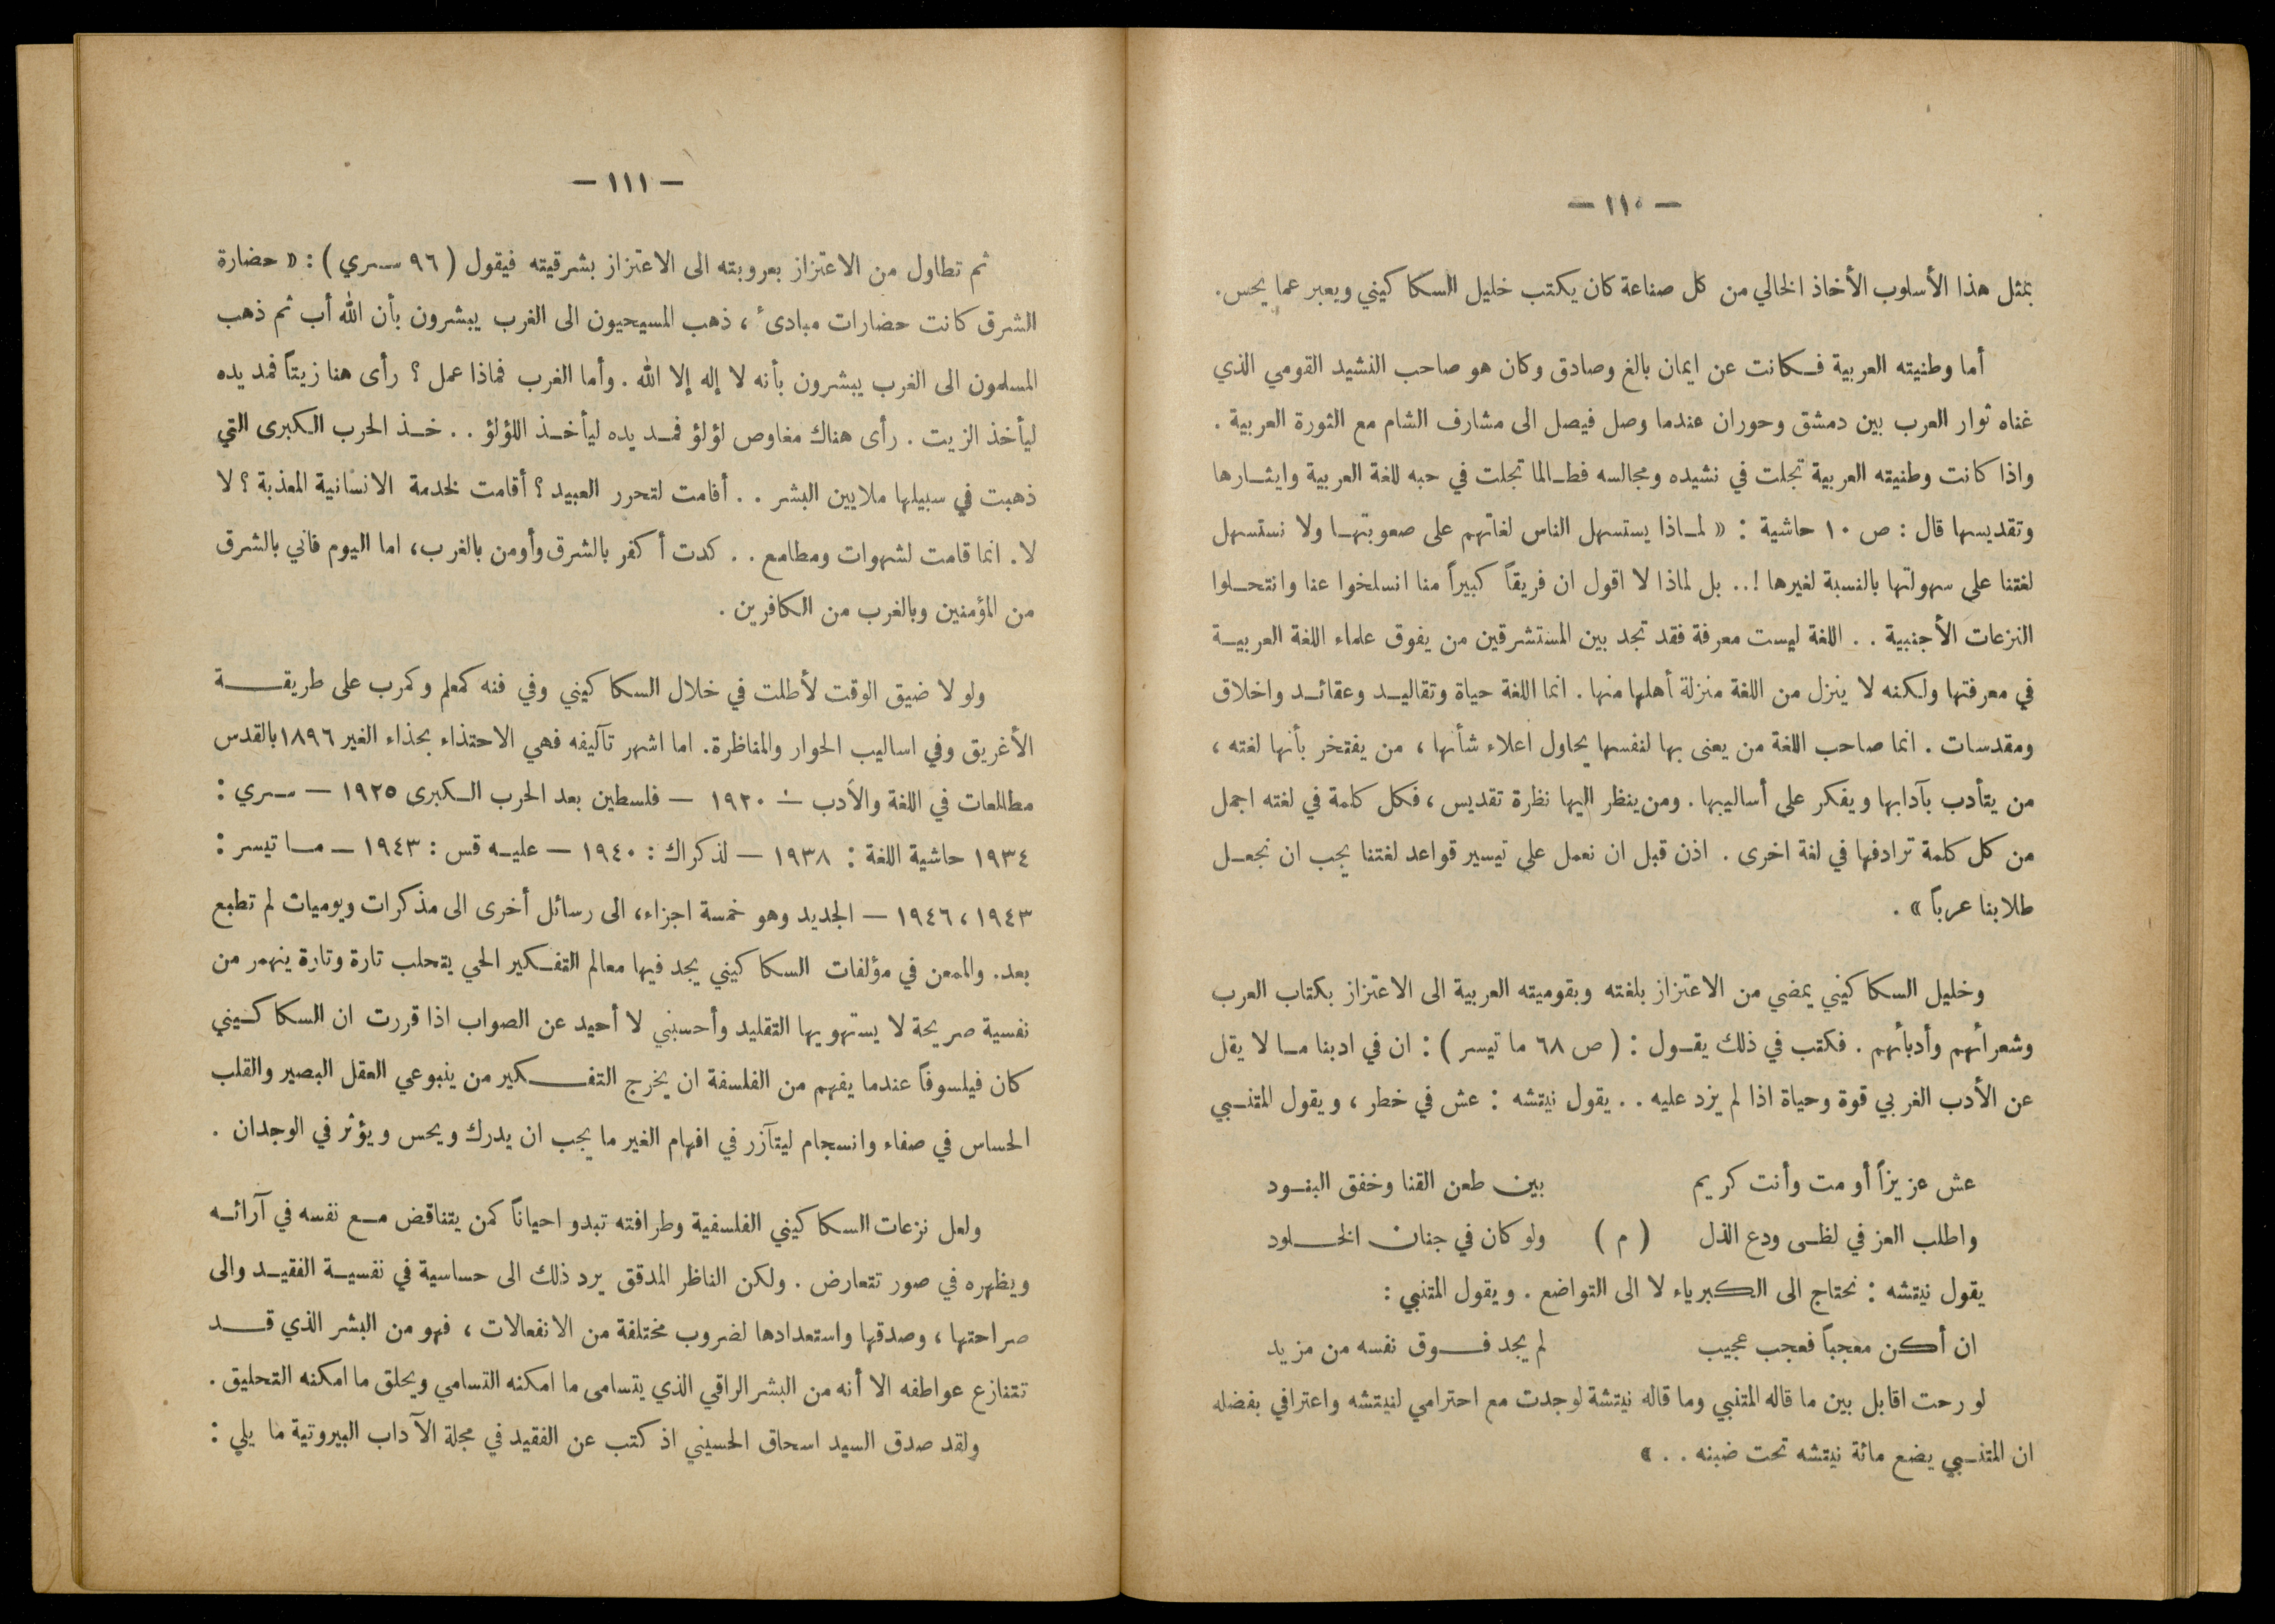 — ١١٠ —
بمثل هذا الأسلوب الأخاذ الخالي من كل صناعة كان يكتب خليل السكاكيني ويعبر عما يحس.
أما وطنيته العربية فكانت عن ايمان بالغ وصادق وكان هو صاحب النشيد القومي الذي
غناه ثوار العرب بين دمشق وحوران عندما وصل فيصل الى مشارف الشام مع الثورة العربية .
واذا كانت وطنيته العربية تجلت في نشيده ومجالسه فطالما تجلت في حبه للغة العربية وايثارها
وتقديسها قال : ص ١٠ حاشية : « لماذا يستسهل الناس لغاتهم على صعوبتها ولا نستسهل
لغتنا على سهولتها بالنسبة لغيرها !.. بل لماذا لا اقول ان فريقاً كبيراً منا انسلخوا عنا وانتحلوا
النزعات الأجنبية . . اللغة ليست معرفة فقد تجد بين المستشرقين من يفوق علماء اللغة العربية
في معرفتها ولكنه لا ينزل من اللغة منزلة أهلها منها . انما اللغة حياة وتقاليد وعقائد واخلاق
ومقدسات . انما صاحب اللغة من يعنى بها لنفسها يحاول اعلاء شأنها ، من يفتخر بأنها لغته ،
من يتأدب بآدابها ويفكر على أساليبها . ومن ينظر اليها نظرة تقديس ، فكل كلمة في لغته اجمل
من كل كلمة ترادفها في لغة اخرى . اذن قبل ان نعمل على تيسير قواعد لغتنا يجب ان نجعل
طلابنا عرباً » .
وخليل السكاكيني يمضي من الاعتزاز بلغته وبقوميته العربية الى الاعتزاز بكتاب العرب
وشعرائهم وأدبائهم . فكتب في ذلك يقول : ( ص ٦٨ ما تيسر ) : ان في ادبنا ما لا يقل
عن الأدب الغربي قوة وحياة اذا لم يزد عليه . . يقول نيتشه : عش في خطر ، ويقول المتنبي
عش عزيزاً أو مت وأنت كريم بين طعن القنا وخفق البنود
واطلب العز في لظى ودع الذل ( م ) ولو كان في جنان الخلود
يقول نيتشه : نحتاج الى الكبرياء لا الى التواضع . ويقول المتنبي :
ان أكن معجباً فعجب عجيب لم يجد فوق نفسه من مزيد
لو رحت اقابل بين ما قاله المتنبي وما قاله نيتشة لوجدت مع احترامي لنيتشه واعترافي بفضله
ان المتنبي يضع مائة نيتشه تحت ضبنه . . »
— ١١١ —
ثم تطاول من الاعتزاز بعروبته الى الاعتزاز بشرقيته فيقول ( ٩٦ سري ) : « حضارة
الشرق كانت حضارات مبادئ ، ذهب المسيحيون الى الغرب يبشرون بأن الله أب ثم ذهب
المسلمون الى الغرب يبشرون بأنه لا إله إلا الله . وأما الغرب فماذا عمل ؟ رأى هنا زيتاً فمد يده
ليأخذ الزيت . رأى هناك مغاوص لؤلؤ فمد يده ليأخذ اللؤلؤ . . خذ الحرب الكبرى التي
ذهبت في سبيلها ملايين البشر . . أقامت لتحرر العبيد ؟ أقامت لخدمة الانسانية المعذبة ؟ لا
لا . انما قامت لشهوات ومطامع . . كدت أكفر بالشرق وأومن بالغرب ، اما اليوم فاني بالشرق
من المؤمنين وبالغرب من الكافرين .
ولولا ضيق الوقت لأطلت في خلال السكاكيني وفي فنه كمعلم وكمرب على طريقة
الأغريق وفي اساليب الحوار والمناظرة . اما اشهر تآليفه فهي الاحتذاء بحذاء الغير ١٨٩٦ بالقدس
مطالعات في اللغة والأدب – ١٩٢٠ – فلسطين بعد الحرب الكبرى ١٩٢٥ – سري :
١٩٣٤ حاشية اللغة : ١٩٣٨ – لذكراك : ١٩٤٠ – عليه قس : ١٩٤٣ – ما تيسر :
١٩٤٣ ، ١٩٤٦ – الجديد وهو خمسة اجزاء ، الى رسائل أخرى الى مذكرات ويوميات لم تطبع
بعد . والممعن في مؤلفات السكاكيني يجد فيها معالم التفكير الحي يتحلب تارة وتارة ينهمر من
نفسية صريحة لا يستهويها التقليد وأحسبني لا أحيد عن الصواب اذا قررت ان السكاكيني
كان فيلسوفاً عندما يفهم من الفلسفة ان يخرج التفكير من ينبوعي العقل البصير والقلب
الحساس في صفاء وانسجام ليتآزر في افهام الغير ما يجب ان يدرك ويحس ويؤثر في الوجدان .
ولعل نزعات السكاكيني الفلسفية وطرافته تبدو احياناً كمن يتناقض مع نفسه في آرائه
ويظهره في صور تتعارض . ولكن الناظر المدقق يرد ذلك الى حساسية في نفسية الفقيد والى
صراحتها ، وصدقها واستعدادها لضروب مختلفة من الانفعالات ، فهو من البشر الذي قد
تتنازع عواطفه الا أنه من البشر الراقي الذي يتسامى ما امكنه التسامي ويحلق ما امكنه التحليق .
ولقد صدق السيد اسحاق الحسيني اذ كتب عن الفقيد في مجلة الآداب البيروتية ما يلي :